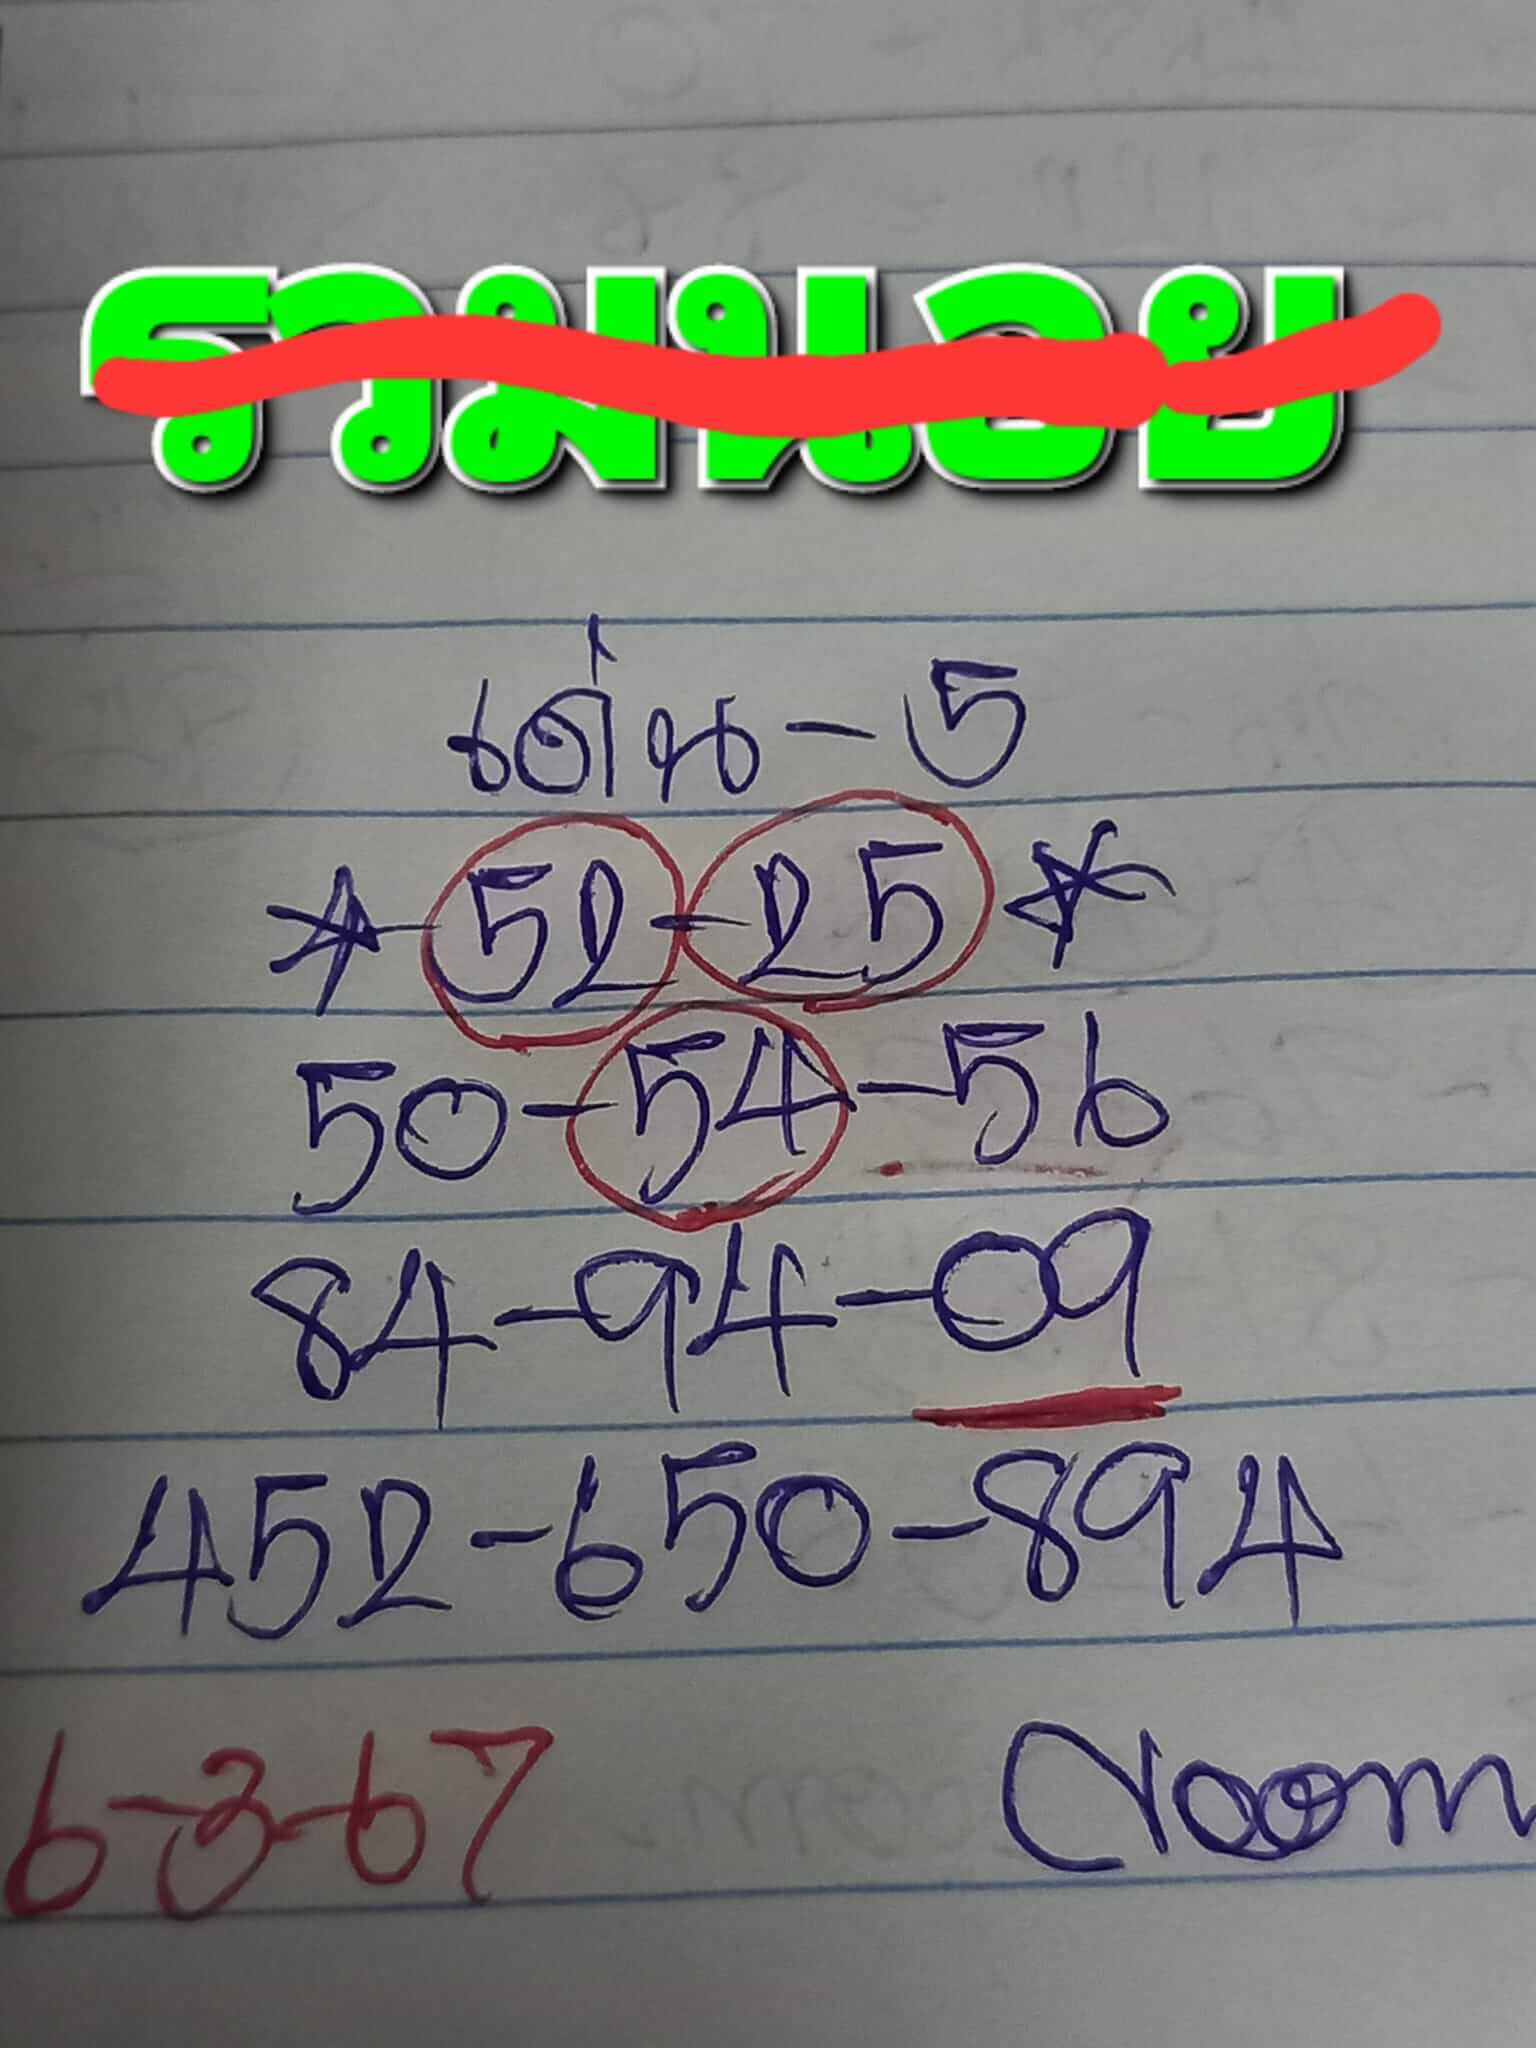 รวมนอย
เด่น - 5
52 - 25
50 - 54 - 56
84 - 94 - 09
452 - 650 - 894
6-3-67